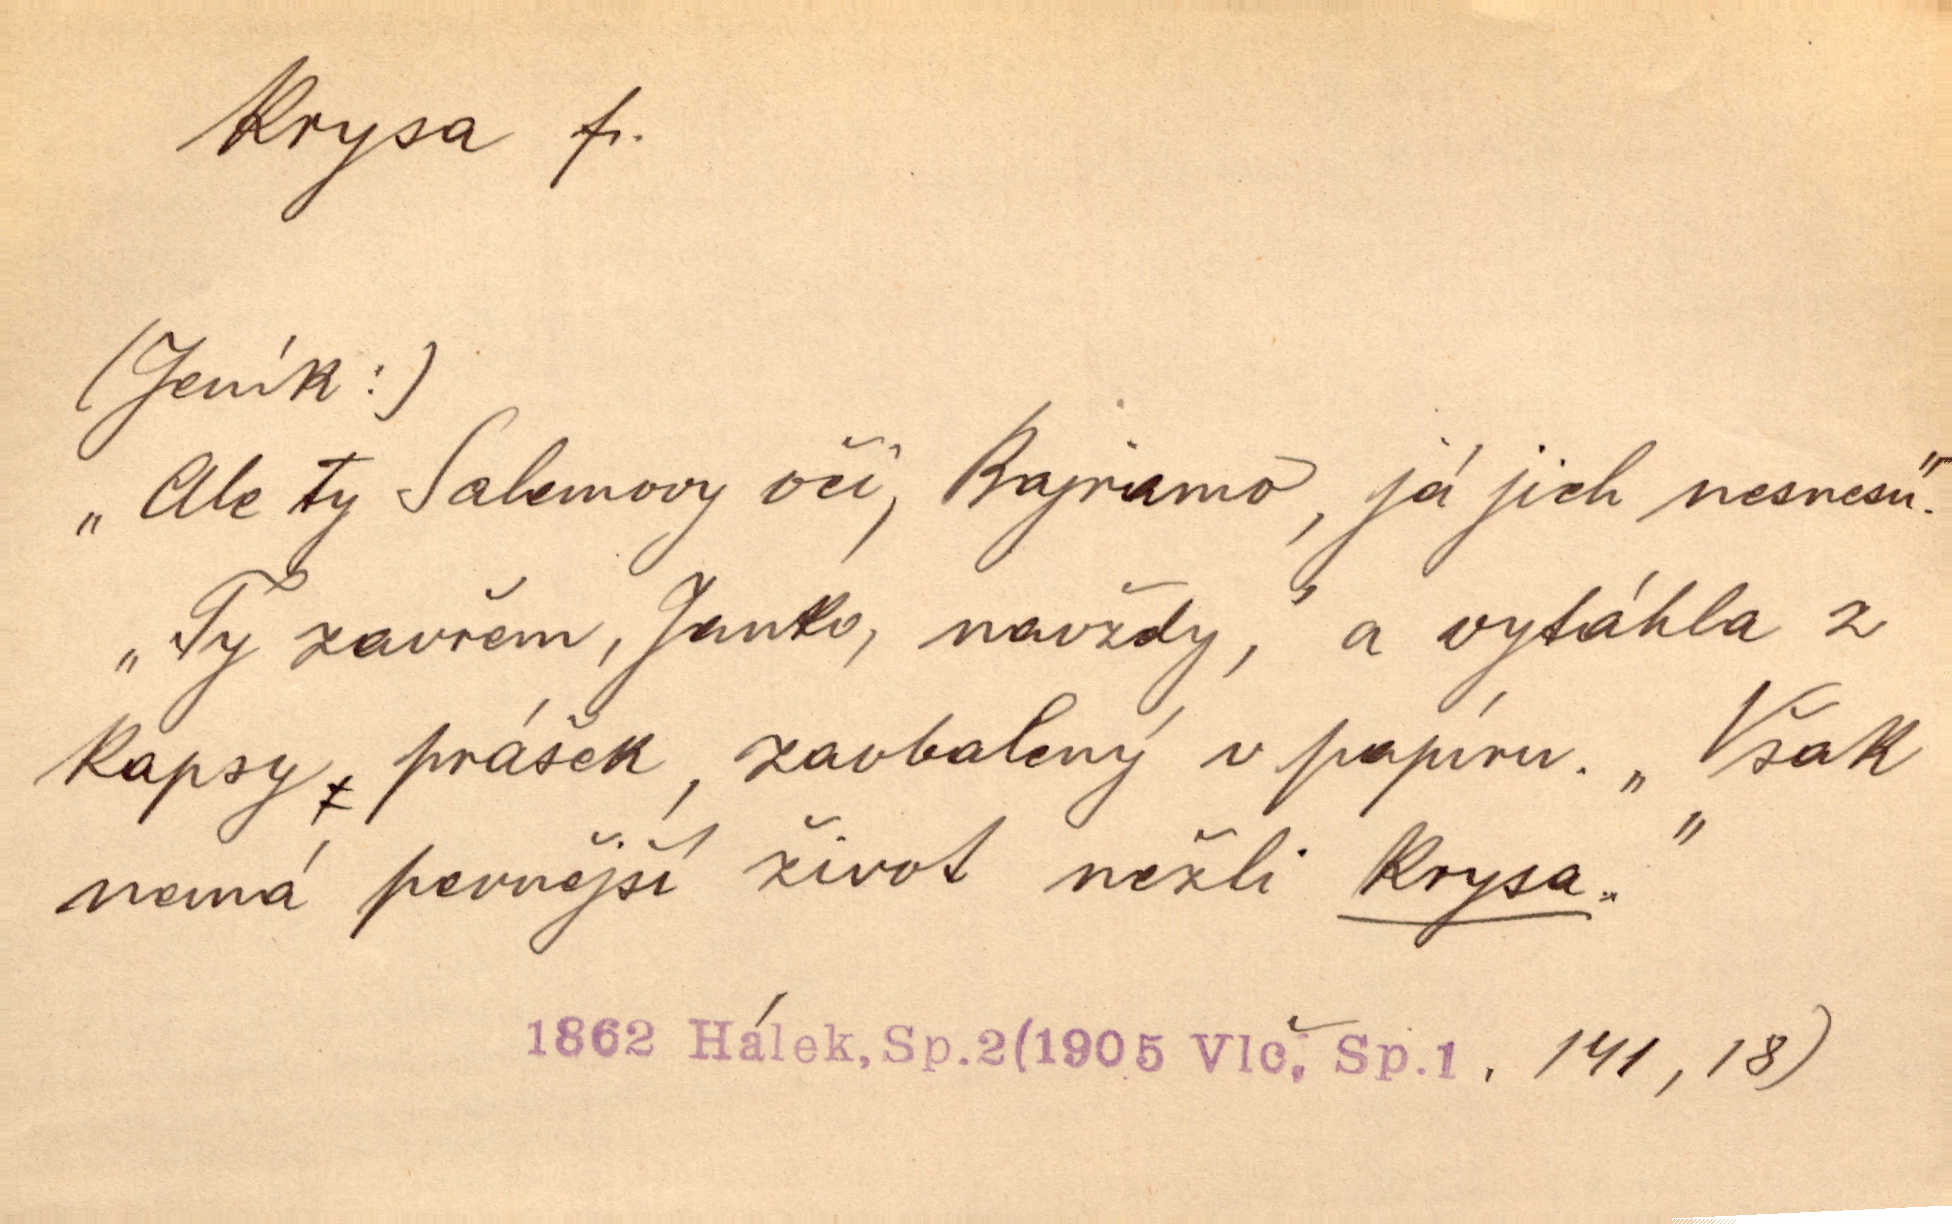 Krysa f.
(Jeník:)
„Ale ty Salemovy oči, Bajramo, já jich nesnesu".
„Ty zavřem, Janko, navždy," a vytáhla z
kapsy prášek, zaobalený v papíru. „Však
nemá pevnější život nežli Krysa."
1862 Hálek, Sp.2(1905 Vlč. Sp.1. 141, 18)